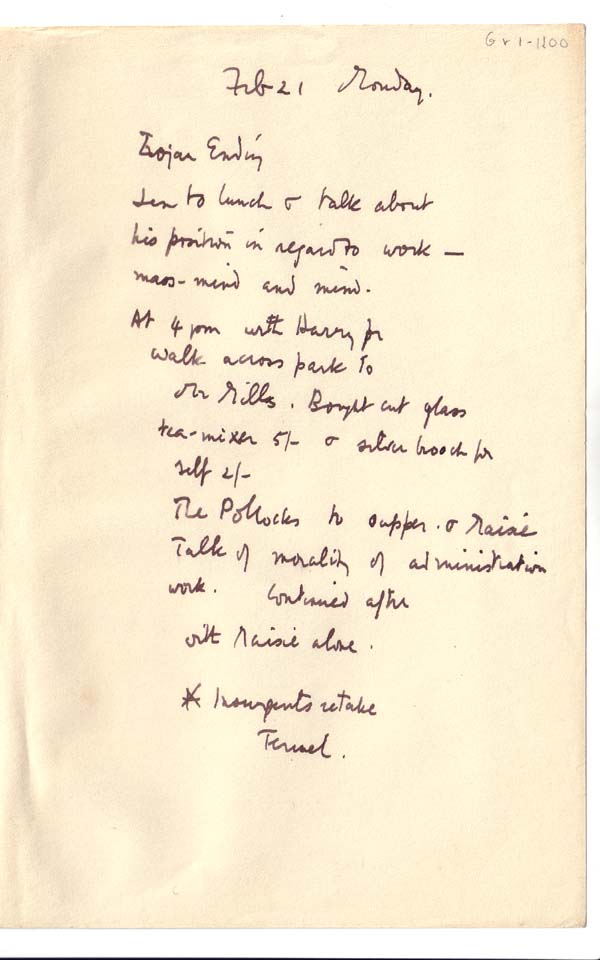 Feb 21 Monday.
Trojan Ending
Len to lunch & talk about
his position in regard to work —
mass-mind and mind.
At 4 pm with Harry for
walk across park to
Mr Mills. Bought cut glass
tea-mixer 5/- & silver brooch for
self 2/-
The Pollocks to supper. & Maisie
Talk of morality of administration
work. Continued after
with Maisie alone.
* Insurgents retake
Teruel.